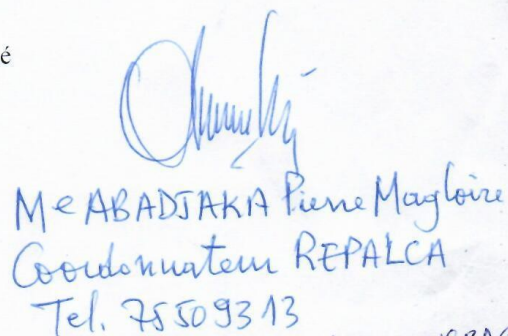 é
Me ABADJAKA Pierre Magloire
Coordonnateur REPALCA
Tel. 75509313